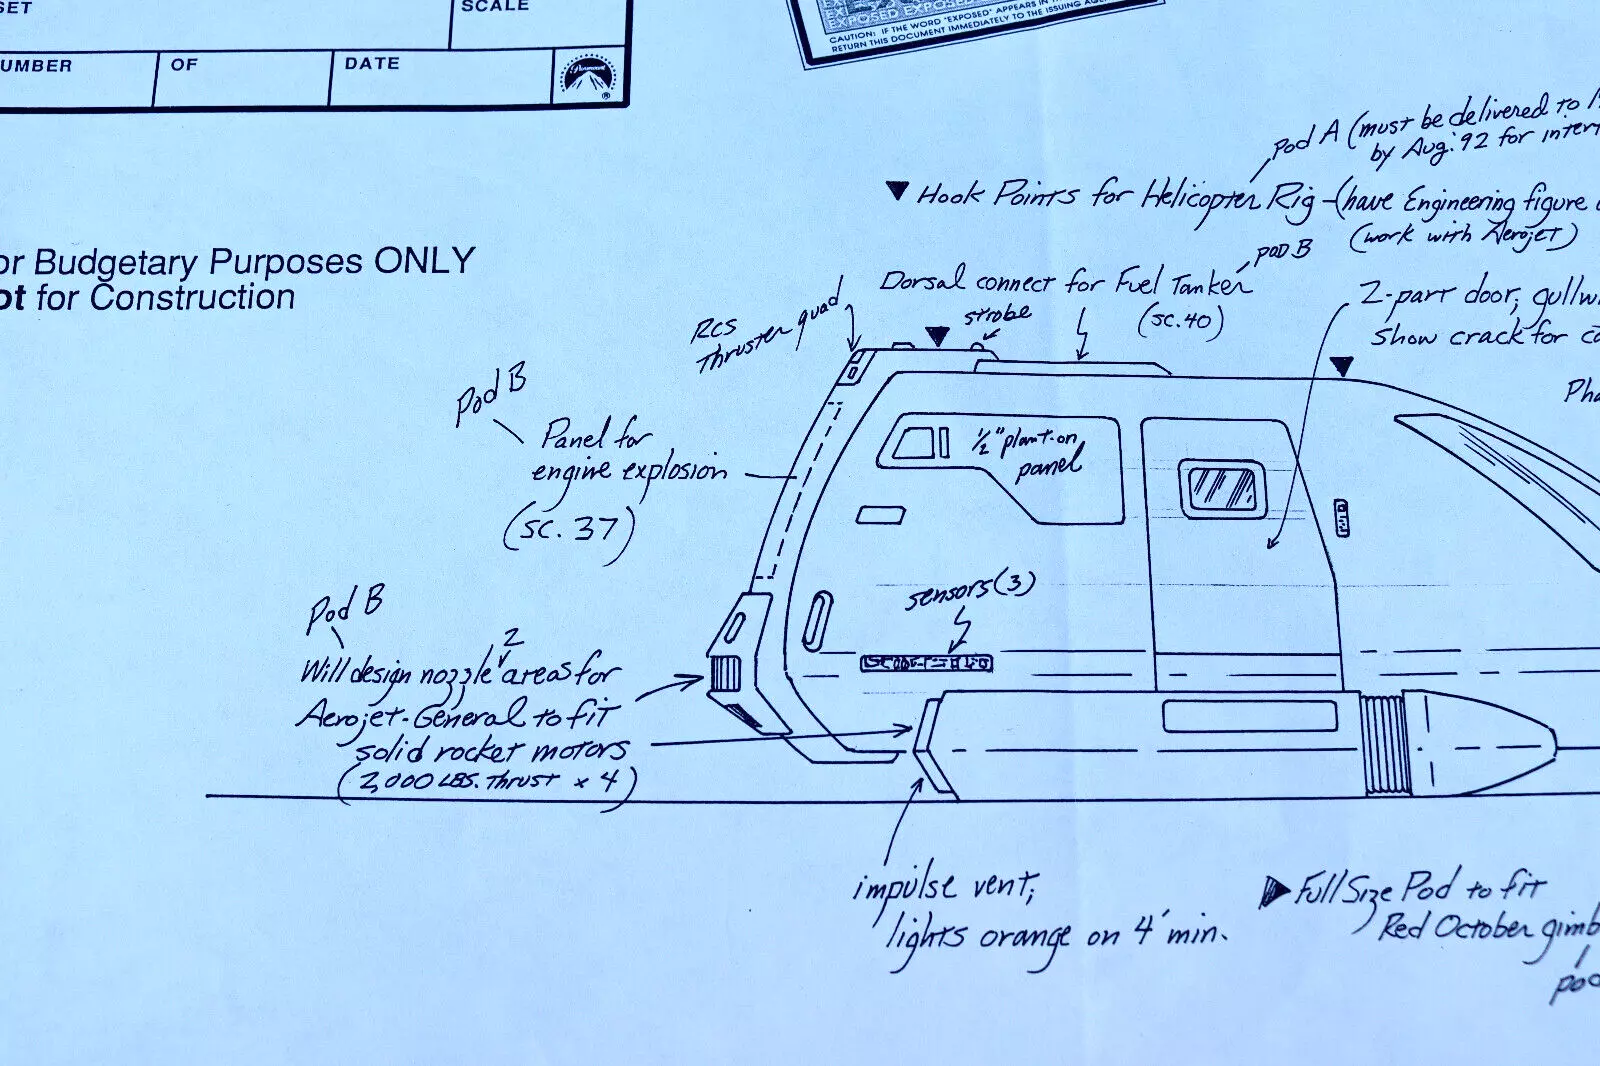 SET
SCALE
UMBER
OF
DATE
Paramount
®
EXPOSED EXPOSED
CAUTION: IF THE WORD "EXPOSED" APPEARS IN
RETURN THIS DOCUMENT IMMEDIATELY TO THE ISSUING
or Budgetary Purposes ONLY
ot for Construction
Pod A (must be delivered to
by Aug. '92 for
Hook Points for Helicopter Rig - (have Engineering figure
(work with Aerojet)
Pod B
Dorsal connect for Fuel Tanker
(sc. 40)
strobe
RCS
Thruster quad
2-part door, gullw
show crack for
Pha
Pod B
Panel for
engine explosion
(sc. 37)
1/2" plant-on
panel
sensors (3)
Pod B
2
Will design nozzle areas for
Aerojet-General to fit
solid rocket motors
(2,000 LBS. Thrust x 4)
impulse vent;
lights orange on 4' min.
Full Size Pod to fit
Red October gimb
pod